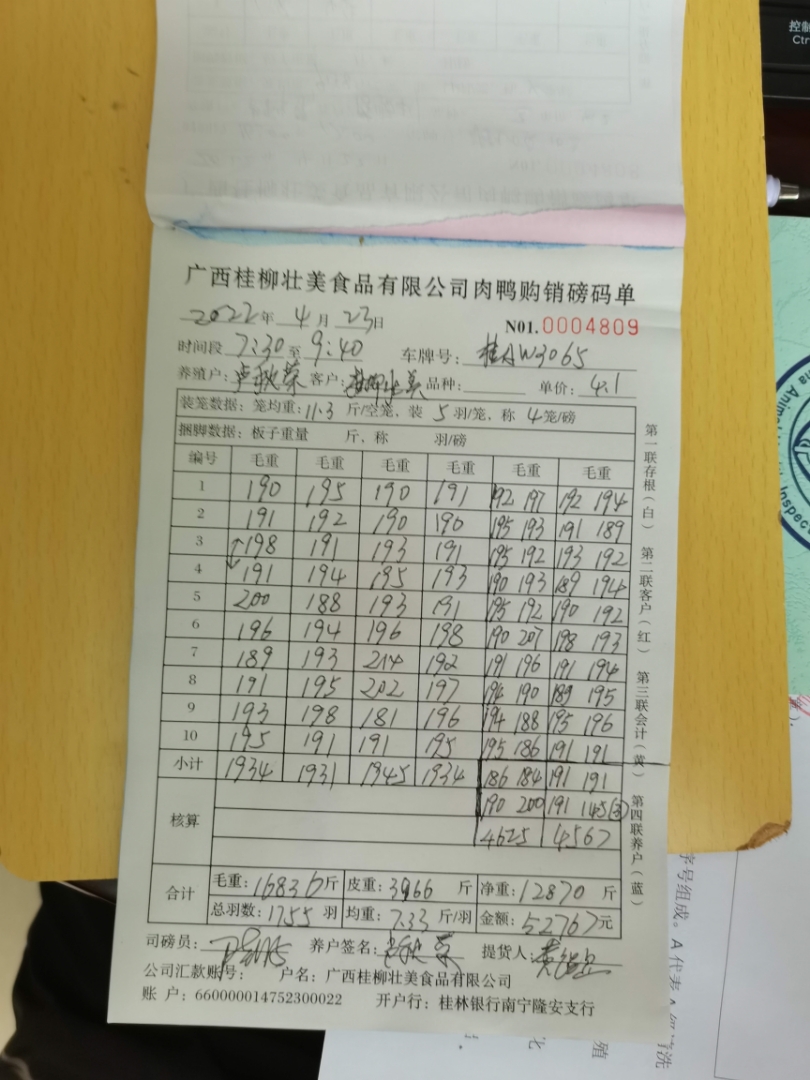 控制
Ctr
广西桂柳壮美食品有限公司肉鸭购销磅码单
2022年 4月 23日 N01.0004809
时间段 7:30 至 9:40 车牌号: 桂AW3065
养殖户: 卢秋荣 客户: 桂柳壮美 品种: 单价: 4.1
装笼数据: 笼均重: 11.3 斤/空笼, 装 5 羽/笼, 称 4 笼/磅
捆脚数据: 板子重量 斤, 称 羽/磅
编号 毛重 毛重 毛重 毛重 毛重 毛重
1 190 195 190 191 192 197 192 194
2 191 192 190 190 195 193 191 189
3 198 191 193 191 195 192 193 192
4 191 194 195 193 190 193 189 194
5 200 188 193 191 195 192 190 192
6 196 194 196 198 190 207 198 193
7 189 193 214 192 191 196 191 194
8 191 195 202 197 194 190 189 195
9 193 198 181 196 194 188 195 196
10 195 191 191 195 195 186 191 191
小计 1934 1931 1945 1934 186 184 191 191
核算 190 200 191 145(3)
4625 4567
合计 毛重: 16836斤 皮重: 3966 斤 净重: 12870 斤
总羽数: 1755 羽 均重: 7.33 斤/羽 金额: 52767元
司磅员: 养户签名: 卢秋荣 提货人:
公司汇款账号: 户名: 广西桂柳壮美食品有限公司
账 户: 660000014752300022 开户行: 桂林银行南宁隆安支行
第一联存根(白) 第二联客户(红) 第三联会计(黄) 第四联养户(蓝)
序号组成。A代表